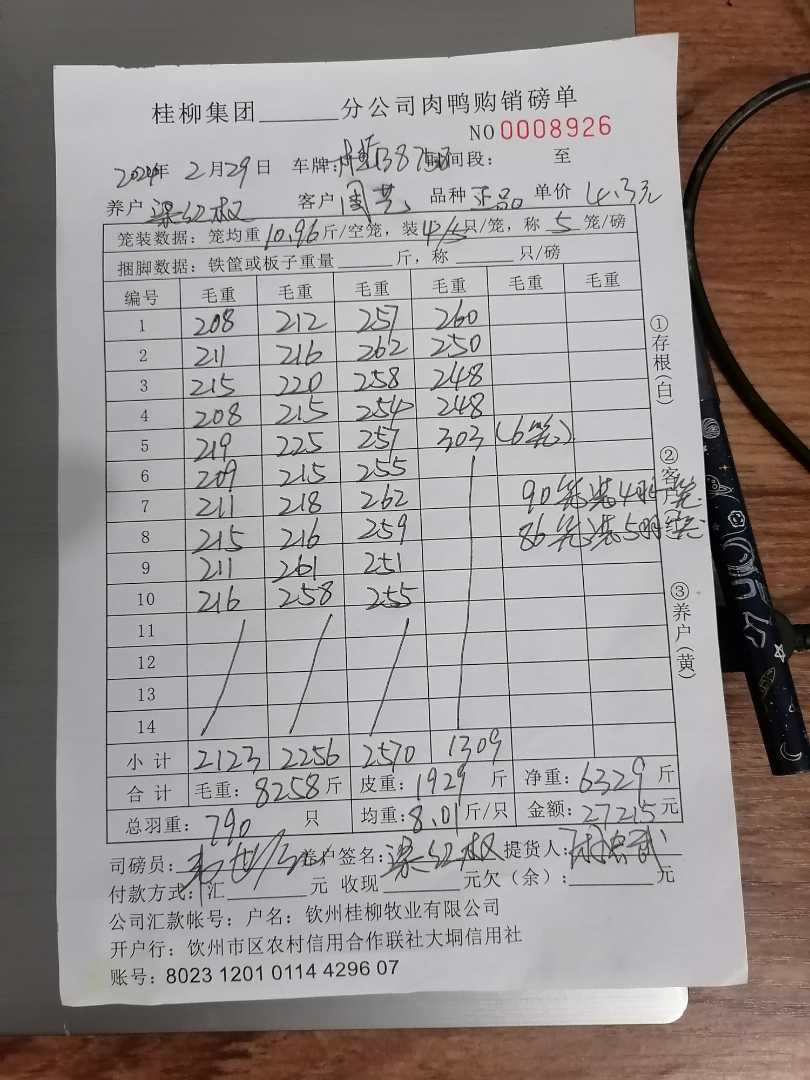 桂柳集团______分公司肉鸭购销磅单
NO 0008926
2024年 2月29日 车牌: 时间段: 至
养户 梁红权 客户 周芝 品种 正品 单价 4.3元
笼装数据: 笼均重10.96斤/空笼, 装4/5只/笼, 称 5 笼/磅
捆脚数据: 铁筐或板子重量______斤, 称______只/磅
编号 毛重 毛重 毛重 毛重 毛重 毛重
1 208 212 257 260
2 211 216 262 250
3 215 220 258 248
4 208 215 254 248
5 219 225 257 303 (6笼)
6 209 215 255
7 211 218 262 90笼装4羽/笼
8 215 216 259 86笼装5羽/笼
9 211 261 251
10 216 258 255
11
12
13
14
小计 2123 2256 2570 1309
合计 毛重: 8258斤 皮重: 1929斤 净重: 6329斤
总羽重: 790 只 均重: 8.01斤/只 金额: 27215元
司磅员: 养户签名: 梁红权 提货人:
付款方式: 汇______元 收现______元欠(余):______元
公司汇款帐号: 户名: 钦州桂柳牧业有限公司
开户行: 钦州市区农村信用合作联社大垌信用社
账号: 8023 1201 0114 4296 07
①存根(白)
②客户
③养户(黄)